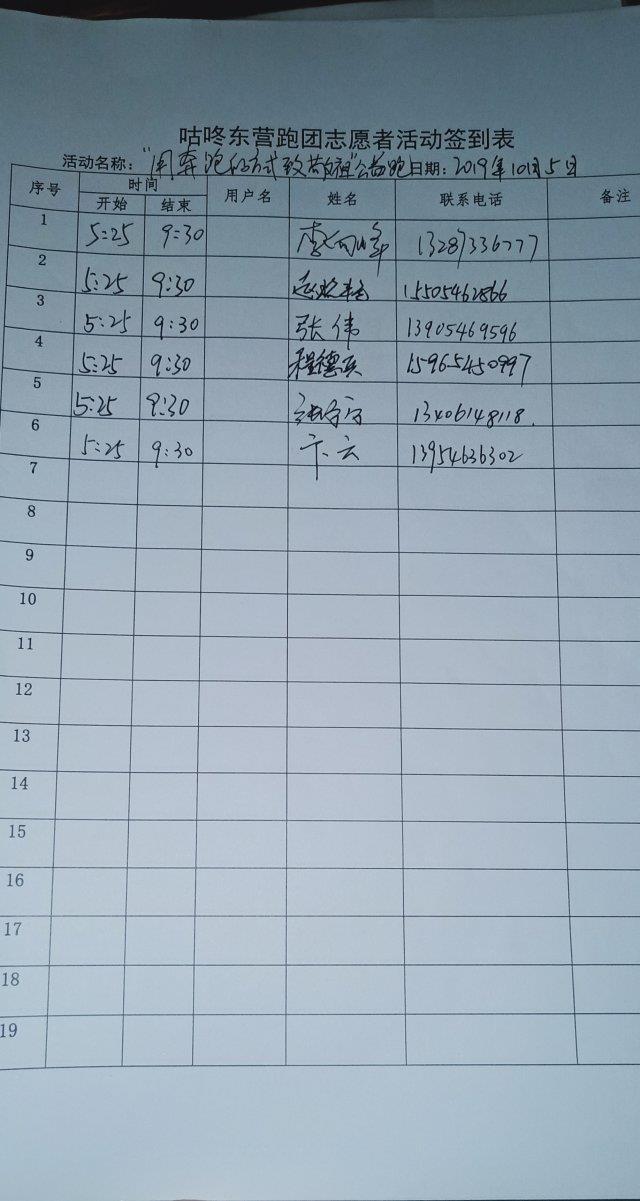 咕咚东营跑团志愿者活动签到表
活动名称："用奔跑的方式致敬祖国"公益跑 日期：2019年10月5日
序号 时间 用户名 姓名 联系电话 备注
开始 结束
1 5:25 9:30 李向峰 13287336777
2 5:25 9:30 15505462866
3 5:25 9:30 张伟 13905469596
4 5:25 9:30 程德 15965450997
5 5:25 9:30 13406148118.
6 5:25 9:30 卞云 13954636302
7
8
9
10
11
12
13
14
15
16
17
18
19